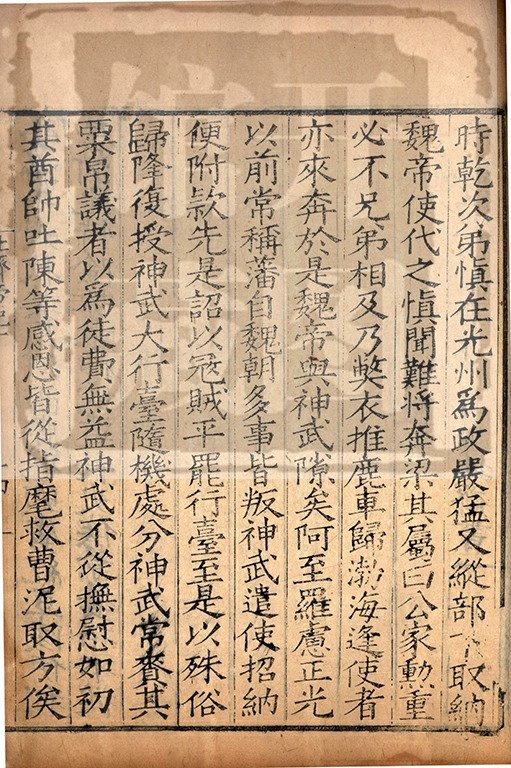 時乾次弟慎在光州爲政嚴猛又縱部下取納
魏帝使代之慎聞難將奔梁其屬曰公家勳重
必不兄弟相及乃弊衣推鹿車歸渤海逢使者
亦來奔於是魏帝與神武隙矣阿至羅虜正光
以前常稱藩自魏朝多事皆叛神武遣使招納
便附款先是詔以寇賊平罷行臺至是以殊俗
歸降復授神武大行臺隨機處分神武常賚其
粟帛議者以爲徒費無益神武不從撫慰如初
其酋帥吐陳等感恩皆從指麾救曹泥取万俟